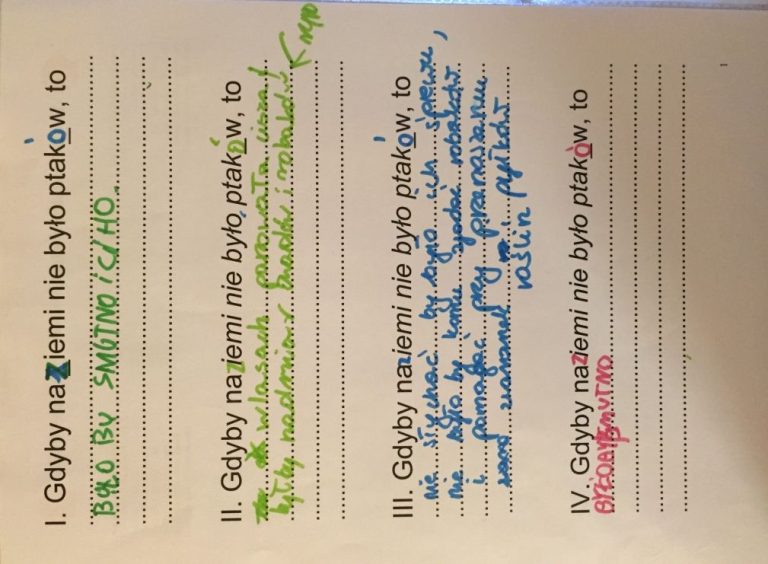 I. Gdyby na ziemi nie było ptaków, to
BYŁO BY SMUTNO i CIHO.
II. Gdyby na ziemi nie było ptaków, to
w lasach panowała cisza!
byłby nadmiar much i robaków
III. Gdyby na ziemi nie było ptaków, to
nie słychać by było ich śpiewu,
nie było by komu zjadać robaków
i pomagać przy przenoszeniu
ziaren i pyłków
roślin
IV. Gdyby na ziemi nie było ptaków, to
BYŁOBY SMUTNO